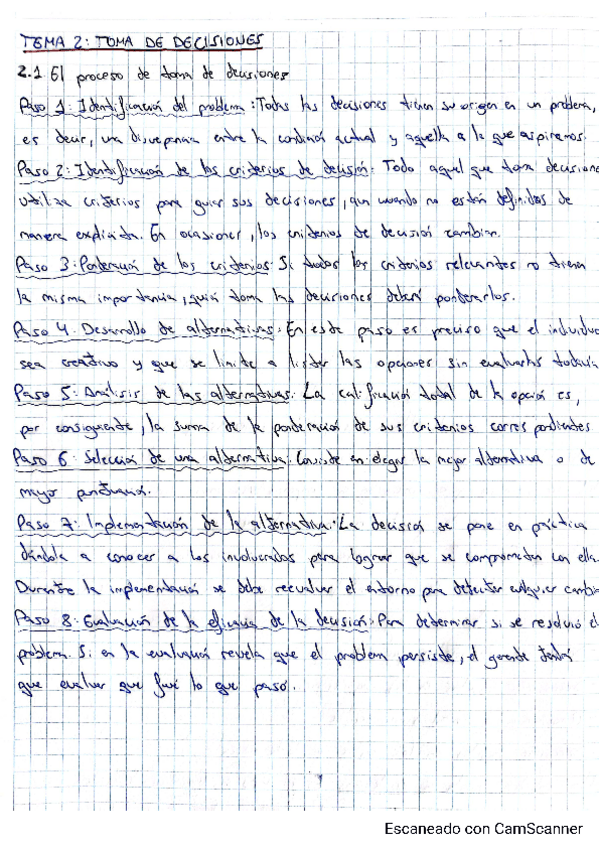 TEMA 2: TOMA DE DECISIONES
2.1 El proceso de toma de decisiones
Paso 1: Identificación del problema: Todas las decisiones tienen su origen en un problema,
es decir, una discrepancia entre la condición actual y aquella a la que aspiramos.
Paso 2: Identificación de los criterios de decisión: Todo aquel que toma decisione
utiliza criterios para guiar sus decisiones, aun cuando no están definidos de
manera explícita. En ocasiones, los criterios de decisión cambian.
Paso 3: Ponderación de los criterios: Si todos los criterios relevantes no tienen
la misma importancia, quien toma las decisiones deberá ponderarlos.
Paso 4: Desarrollo de alternativas: En este paso es preciso que el individuo
sea creativo y que se limite a listar las opciones sin evaluarlas todavía
Paso 5: Análisis de las alternativas: La calificación total de la opción es,
por consiguiente, la suma de la ponderación de sus criterios correspondientes
Paso 6: Selección de una alternativa: Consiste en elegir la mejor alternativa o de
mayor puntuación.
Paso 7: Implementación de la alternativa: La decisión se pone en práctica
dándola a conocer a los involucrados para lograr que se comprometan con ella.
Durante la implementación se debe reevaluar el entorno para detectar cualquier cambio
Paso 8: Evaluación de la eficacia de la decisión: Para determinar si se resolvió el
problema. Si en la evaluación revela que el problema persiste, el gerente tendrá
que evaluar que fué lo que pasó.
Escaneado con CamScanner